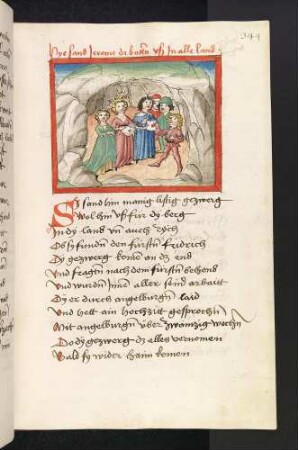 344
Hye sand Jerome die botten vß In alle land
Sy sand hin manig listig gezwerg
Wol hin vß für dz berg
In dz land vn̄ auch rych
Ob sy funden den fürstn̄ Fridrich
Dy gezwerg kome an dz end
Vnd fragtn̄ nach dem fürstn̄ behend
Vnd wurdn̄ Jnnē aller sand arbaitt
Dz er durch angelburgn̄ laid
Vnd hett ain hochzitt gesprochn̄
Mit angelburgn̄ über zwaintzig wochn̄
Do dz gezwerg dz alles vernomen
Bald sy wider haim komen